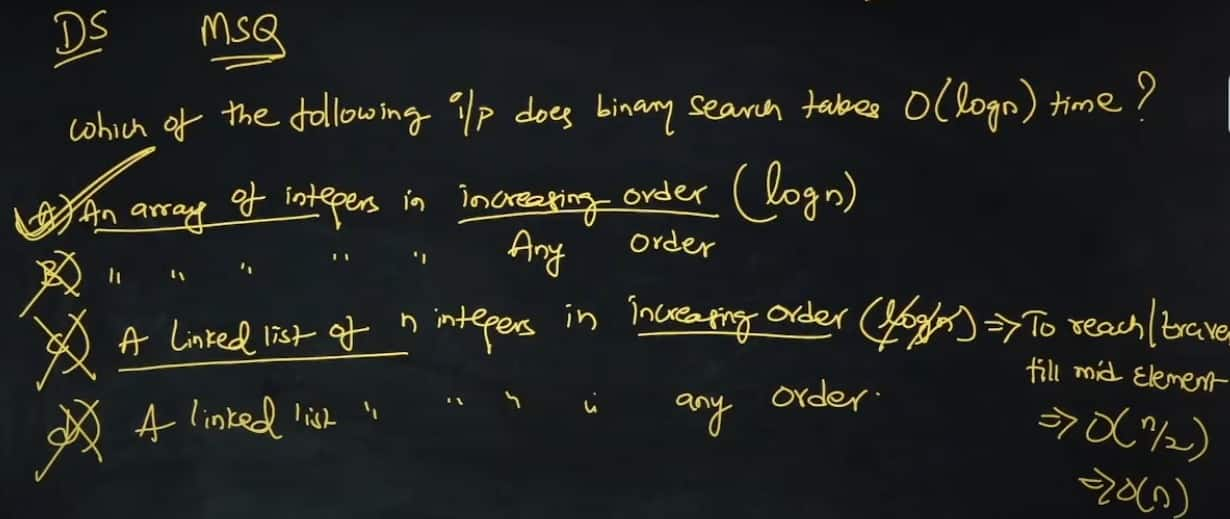 DS MSQ
Which of the following i/p does binary search takes O(logn) time?
A) An array of integers in increasing order (logn)
B) " " " " " Any order
c) A Linked list of n integers in increasing order (logn) => To reach/trave
till mid Element
d) A linked list " " " " any order.
=> O(n/2)
=> O(n)